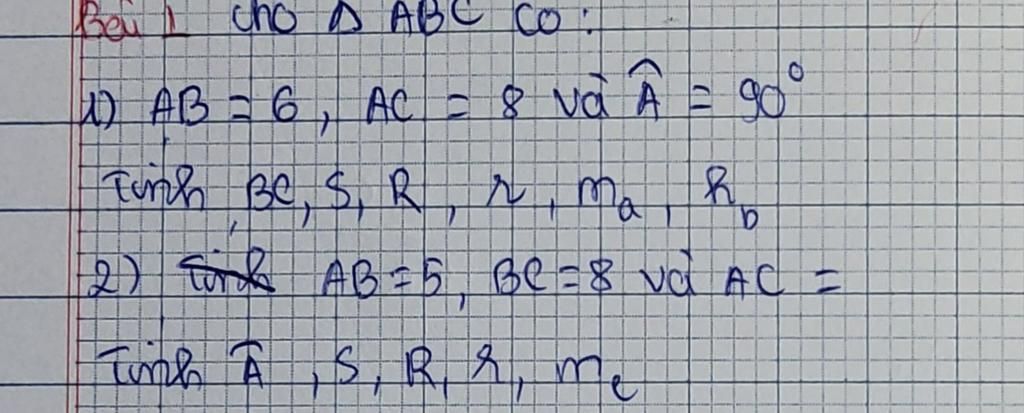 Bài 1 cho Δ ABC có:
1) AB = 6, AC = 8 và Â = 90°
Tính BC, S, R, r, mₐ, h_b
2) AB = 5, BC = 8 và AC =
Tính Â, S, R, r, m_c